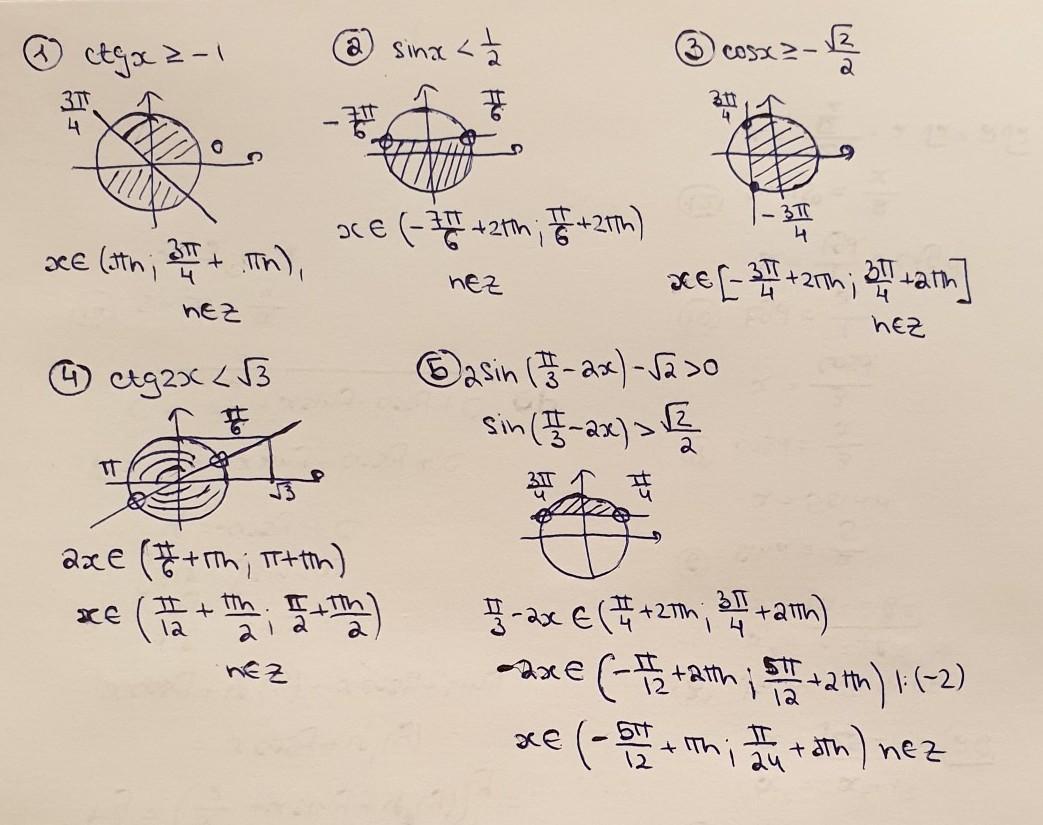 ① ctgx ≥ -1
3π/4
0
x∈ (πn; 3π/4 + πn),
n∈z
② sinx < 1/2
-7π/6
π/6
x∈ (-7π/6 +2πn; π/6 +2πn)
n∈z
③ cosx ≥ -√2/2
3π/4
-3π/4
x∈ [-3π/4 +2πn; 3π/4 +2πn]
n∈z
④ ctg2x < √3
π/6
π
√3
2x∈ (π/6 +πn; π+πn)
x∈ (π/12 + πn/2; π/2 + πn/2)
n∈z
⑤ 2sin (π/3 -2x) -√2 >0
sin (π/3 -2x) > √2/2
3π/4
π/4
π/3 -2x ∈ (π/4 +2πn; 3π/4 +2πn)
-2x∈ (-π/12 +2πn; 5π/12 +2πn) |:(-2)
x∈ (-5π/12 + πn; π/24 + πn) n∈z